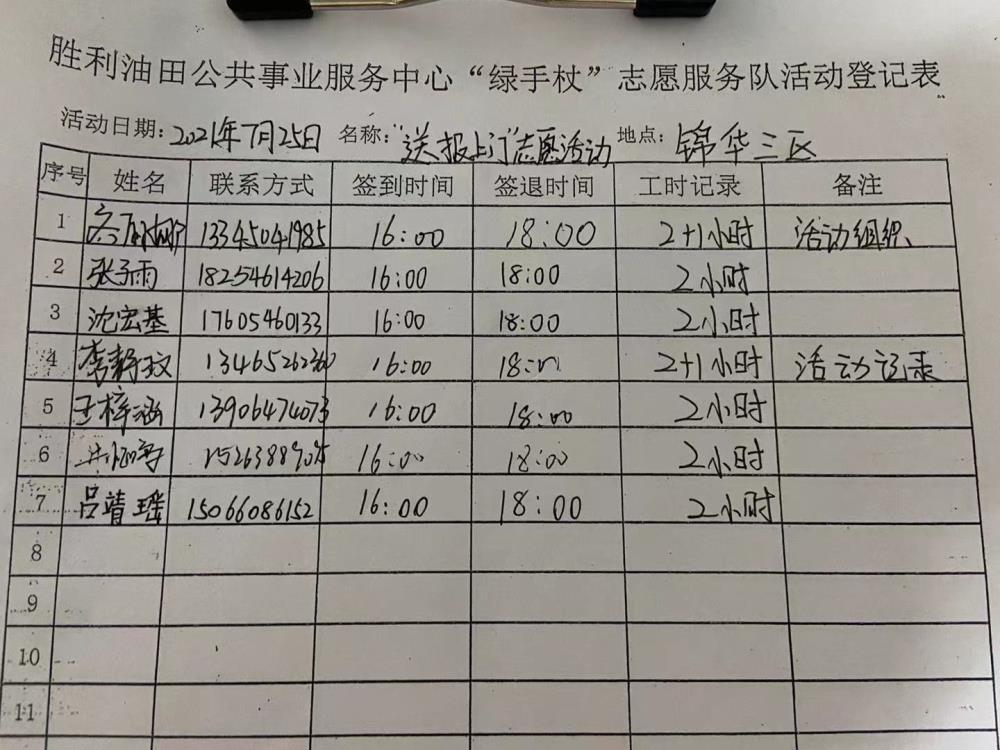 胜利油田公共事业服务中心“绿手杖”志愿服务队活动登记表
活动日期：2021年7月25日 名称：“送报上门”志愿活动 地点：锦华三区
序号 姓名 联系方式 签到时间 签退时间 工时记录 备注
1 13345041985 16:00 18:00 2+1小时 活动组织
2 张子雨 18254614206 16:00 18:00 2小时
3 沈宏基 17605460133 16:00 18:00 2小时
4 李静玟 13465262360 16:00 18:00 2+1小时 活动记录
5 王梓涵 13906474073 16:00 18:00 2小时
6 16:00 18:00 2小时
7 吕靖瑶 15066086152 16:00 18:00 2小时
8
9
10
11